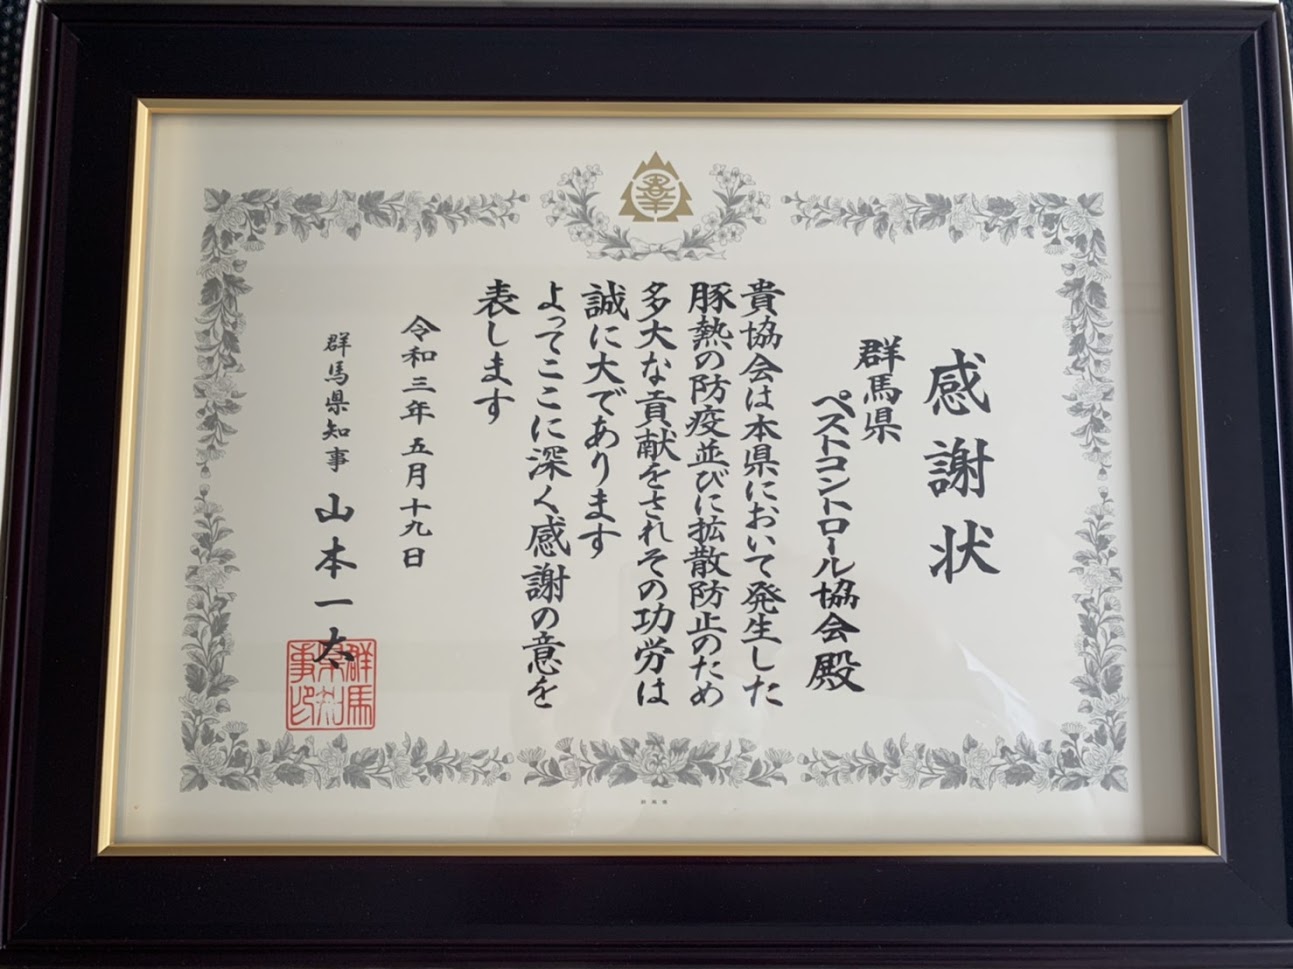 感謝状
群馬県
ペストコントロール協会殿
貴協会は本県において発生した
豚熱の防疫並びに拡散防止のため
多大な貢献をされその功労は
誠に大であります
よってここに深く感謝の意を
表します
令和三年五月十九日
群馬県知事 山本一太
群馬
県知
事印